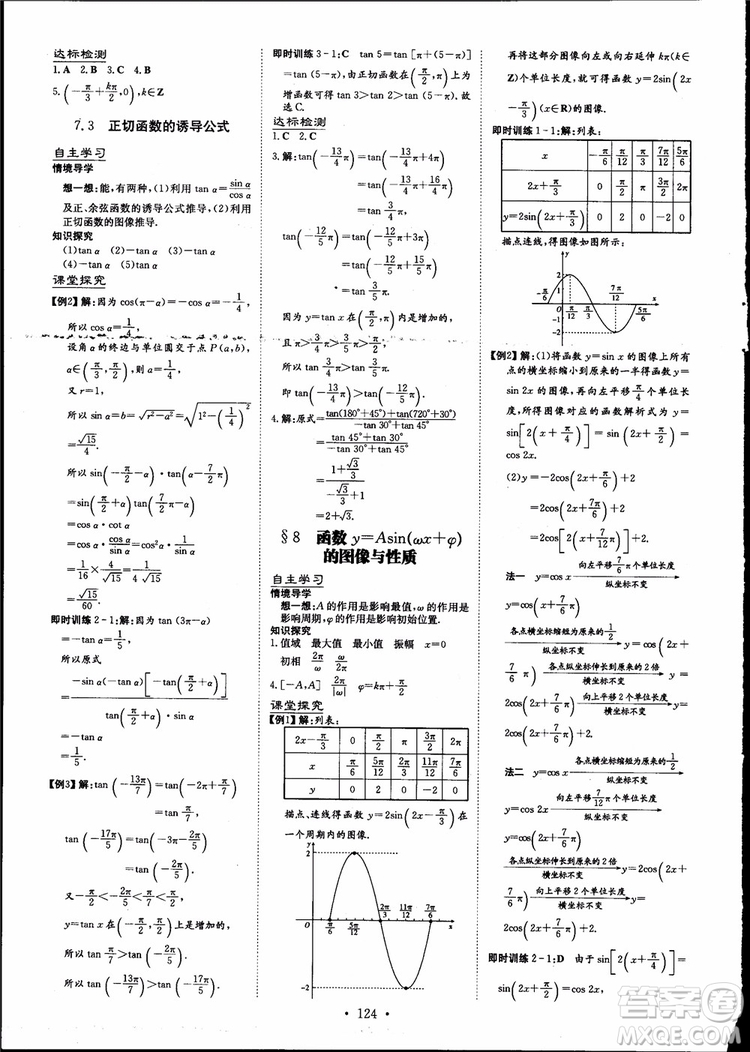 达标检测
1.A 2.B 3.C 4.B
5.(-π/3+kπ/2,0),k∈Z
7.3 正切函数的诱导公式
自主学习
情境导学
想一想:能,有两种,(1)利用tan α=sin α/cos α
及正、余弦函数的诱导公式推导,(2)利用
正切函数的图像推导.
知识探究
(1)tan α (2)-tan α (3)-tan α
(4)-tan α (5)tan α
课堂探究
【例2】解:因为cos(π-α)=-cos α=-1/4,
所以cos α=1/4,
设角α的终边与单位圆交于点P(a,b),
α∈(π/3,π/2),则a=1/4.
又r=1,
所以sin α=b=√(r²-a²)=√(1²-(1/4)²)
=√15/4.
所以sin(-π/2+α)·tan(α-7/2π)
=sin(π/2+α)·tan(π/2+α)
=cos α·cot α
=cos α·cos α/sin α=cos²α·1/sin α
=1/16×4/√15=1/4√15
=√15/60.
即时训练2-1:解:因为tan(3π-α)
=-tan α=-1/5,
所以原式
=-sin α(-tan α)[-tan(π/2+α)]/tan(π/2+α)·sin α
=-tan α
=-1/5.
【例3】解:tan(-13π/7)=tan(-2π+π/7)
=tan π/7,
tan(-14π/5)=tan(-3π+π/5)
=tan π/5.
又-π/2<π/7<π/5<π/2,
y=tan x在(-π/2,π/2)上是增加的,
所以tan π/7<tan π/5,
即tan(-14π/5)>tan(-13π/7).
即时训练3-1:C tan 5=tan[π+(5-π)]
=tan(5-π),由正切函数在(π/2,π)上为
增函数可得tan 3>tan 4>tan(5-π).故
选C.
达标检测
1.C 2.C
3.解:tan(-13/4π)=tan(-13/4π+4π)
=tan(-13/4π+16/4π)
=tan 3/4π,
tan(-12/5π)=tan(-12/5π+3π)
=tan(-12/5π+15/5π)
=tan 3/5π.
因为y=tan x在(π/2,π)内是增加的,
且π>3/4π>3/5π>π/2,
所以tan 3/4π>tan 3/5π.
即tan(-13/4π)>tan(-12/5π).
4.解:原式=tan(180°+45°)+tan(720°+30°)
=tan 45°+tan 30°
=2+√3.
§8 函数y=Asin(ωx+φ)
的图像与性质
自主学习
情境导学
想一想:A的作用是影响最值,ω的作用是
影响周期,φ的作用是影响初始位置.
知识探究
1.值域 最大值 最小值 振幅 x=0
初相 2π/ω ω/2π
4.[-A,A] 2π/|ω| φ=kπ+π/2
课堂探究
【例1】解:列表:
2x-π/3 0 π/2 π 3π/2 2π
x π/6 5π/12 2π/3 11π/12 7π/6
y 0 2 0 -2 0
描点、连线得函数y=2sin(2x-π/3)在
一个周期内的图像.
y
2
0 π/6 5π/12 2π/3 11π/12 7π/6 x
-2
再将这部分图像向左或向右延伸kπ(k∈
Z)个单位长度,就可得函数y=2sin(2x-
π/3)(x∈R)的图像.
即时训练1-1:解:列表:
x -π/6 π/12 π/3 7π/12 5π/6
2x+π/3 0 π/2 π 3π/2 2π
y=2sin(2x+π/3) 0 2 0 -2 0
描点连线,得图像如图所示:
【例2】解:(1)将函数y=sin x的图像上所有
点的横坐标缩小到原来的一半得函数y=
sin 2x的图像,再向左平移π/4个单位长
度,所得图像对应的函数解析式为y=
sin[2(x+π/4)]=sin(2x+π/2)=
cos 2x.
(2)y=-2cos(2x+π/6)+2
=2cos(2x+π/6+π)+2
=2cos(2x+7π/6)+2.
法一 y=cos x 向左平移7/6π个单位长度 纵坐标不变 y=
cos(x+7/6π) 各点横坐标缩短为原来的1/2 纵坐标不变 y=cos(2x+
7/6π) 各点纵坐标伸长到原来的2倍 横坐标不变 y=
2cos(2x+7/6π) 向上平移2个单位长度 y=
2cos(2x+7/6π)+2.
法二 y=cos x 各点横坐标缩短为原来的1/2 纵坐标不变 y=
cos 2x 向左平移7/12π个单位长度 纵坐标不变 y=cos(2x+
7/6π) 各点纵坐标伸长到原来的2倍 横坐标不变 y=2cos(2x+
7/6π) 向上平移2个单位长度 y=
2cos(2x+7/6π)+2.
即时训练2-1:D 由于sin[2(x+π/4)]=
· 124 ·
答案圈
MXQE.COM